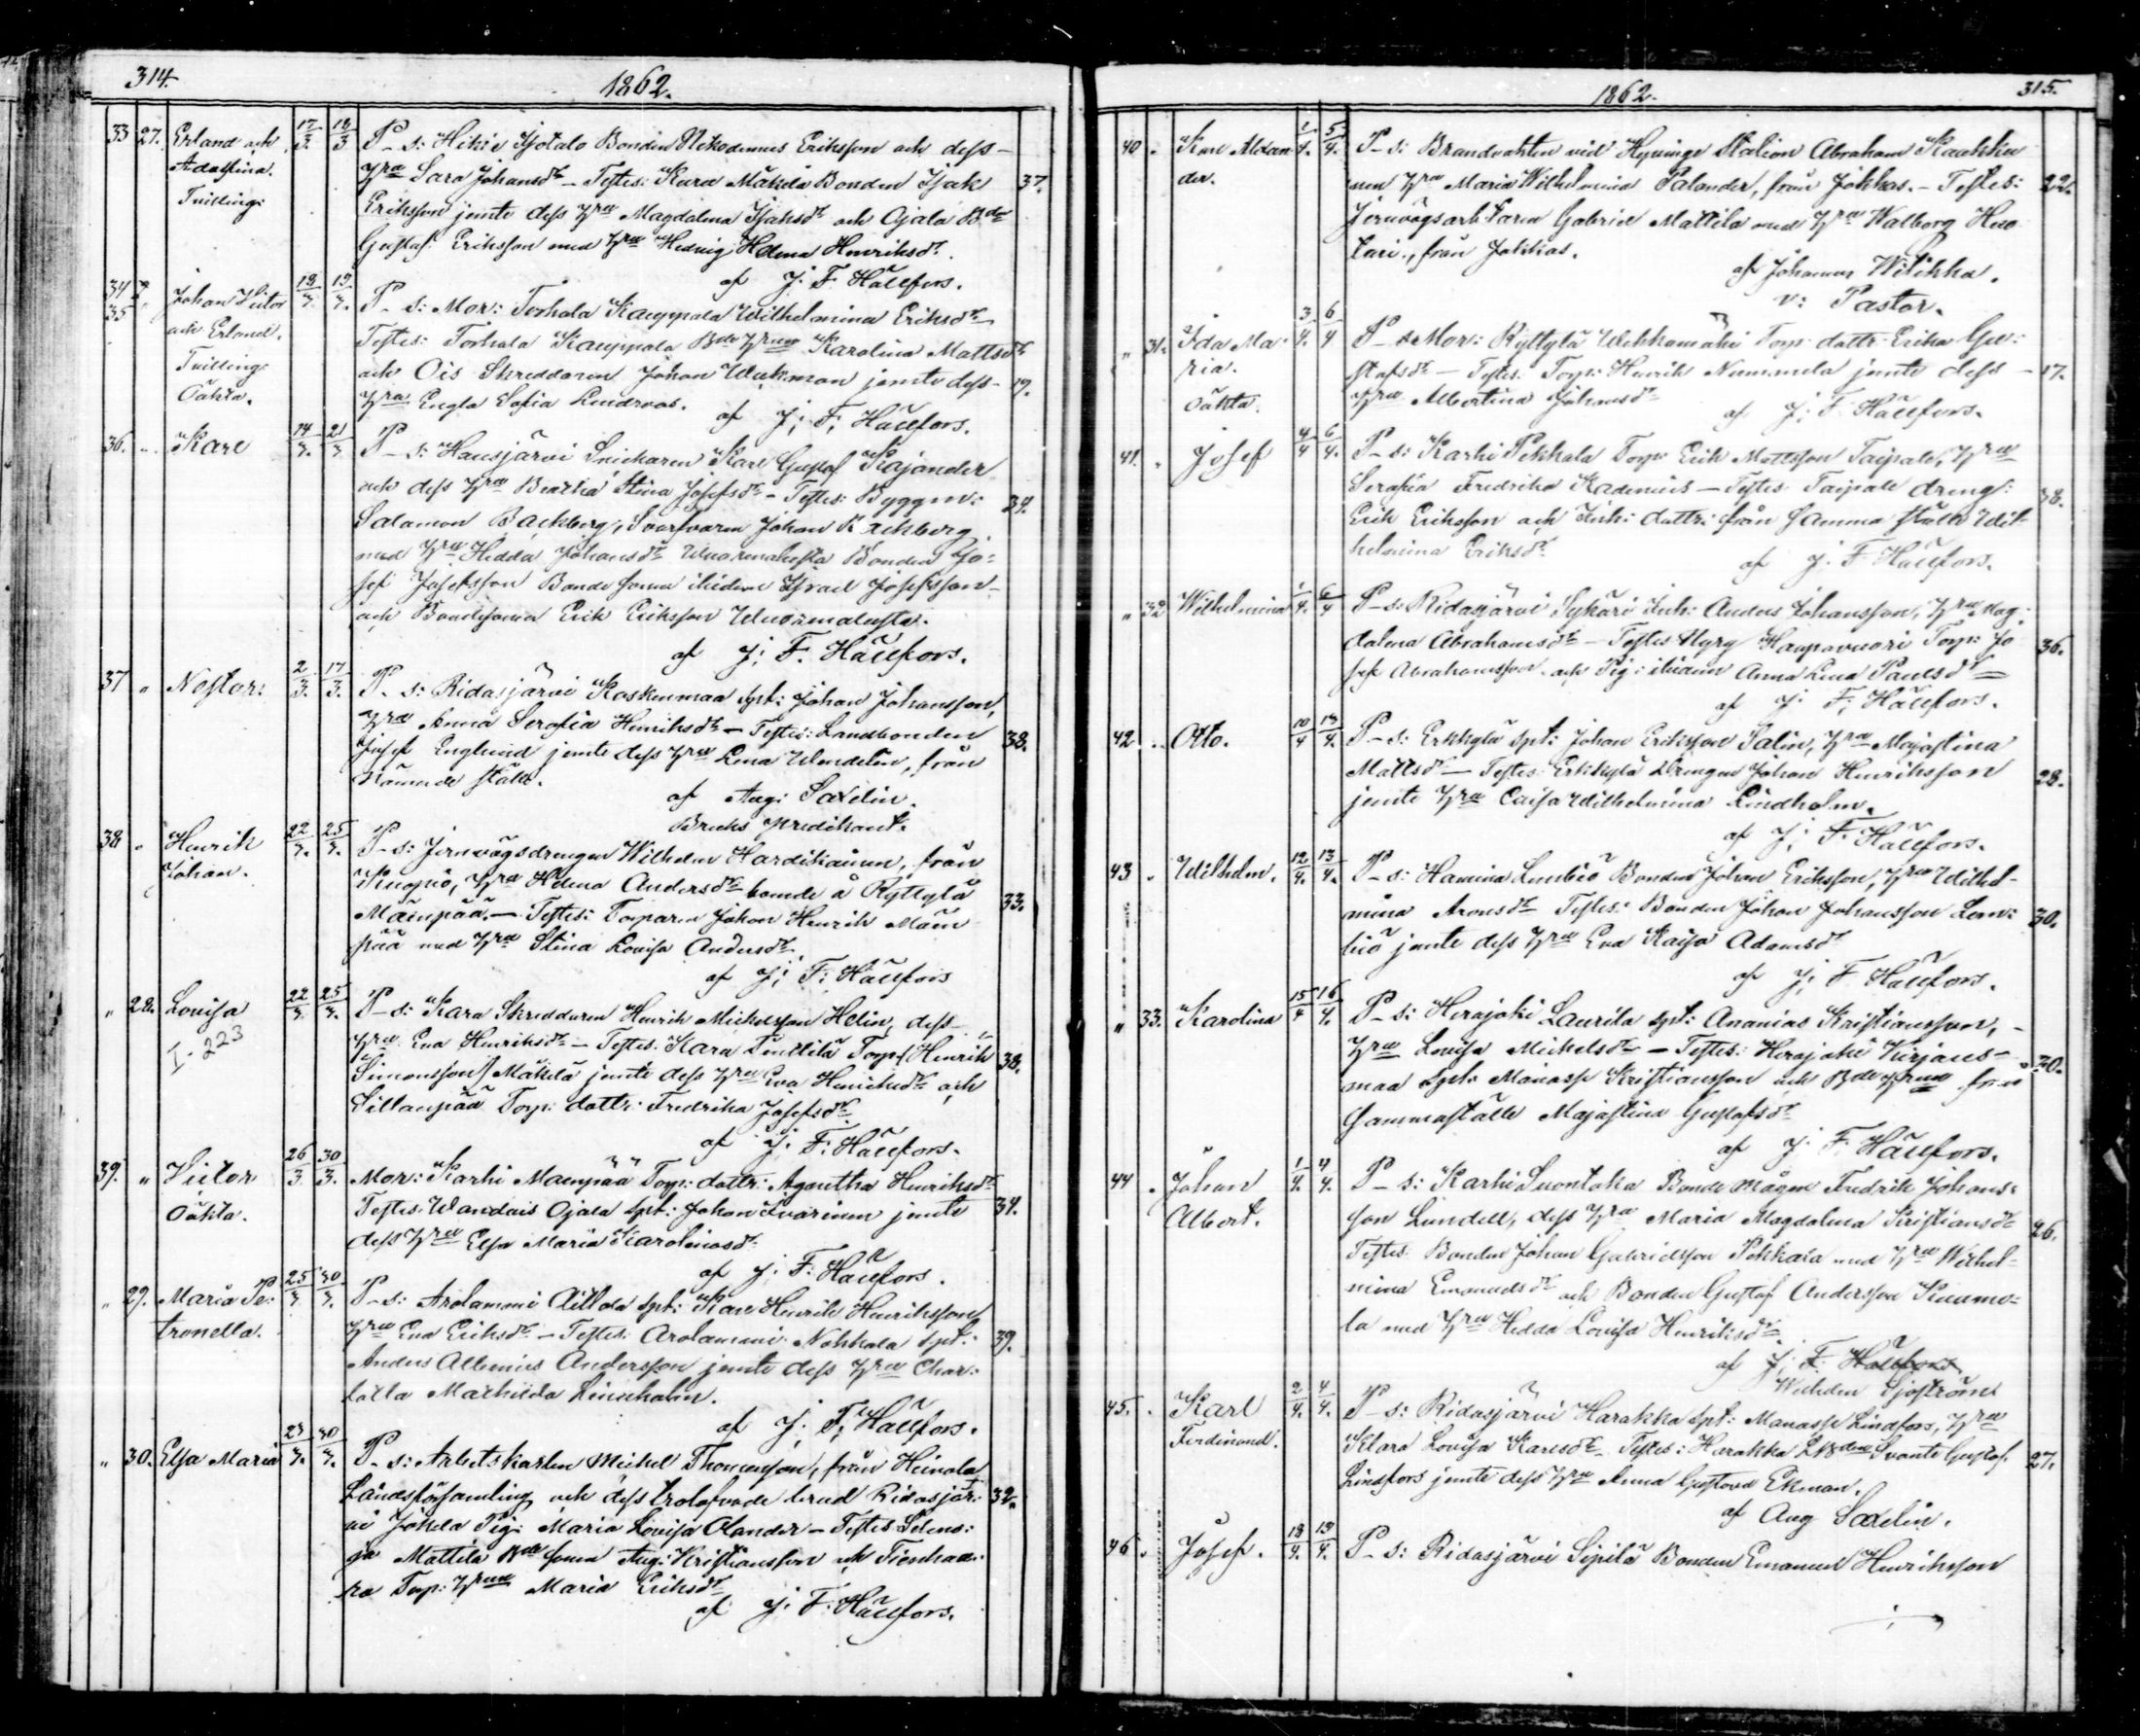 314.
1862.
33 27. Erland och 17/3 18/3 P-s: Hikiä Isotalo Bonden Nikodemus Eriksson och dess
Adolfina. Hru Sara Johansdr - Testes: Kara Mäkilä Bonden Isak 37.
Tvilling: Eriksson jemte dess Hru Magdalena Isaksdr och Ojala Bde
Gustaf Eriksson med Hru Hedvig Helena Henriksdr.
af J. F. Hällfors.
34 35 " Johan Victor 18/3. 19/3. P-s: Mor: Torhola Kauppala Wilhelmina Eriksdr
och Erland. Testes: Torhola Kauppala Bde Hrun Karolina Mattsdr
Tvilling och Ois Skreddaren Johan Wickman jemte dess 19.
Oäkta. Hru Engla Sofia Lindroos. af J: F: Hällfors.
36. " Karl 14/3. 21/3 P-s: Hausjärvi Snickaren Karl Gustaf Kajander
och dess Hru Beatha Stina Josefsdr - Testes: Byggm:
Salamon Backberg, Svarfvaren Johan Backberg
med Hru Hedda Johansdr Bonden Jo-
sef Josefsson Bonde sonen ibidem Israel Josefsson
och Bondesonen Erik Eriksson
af J: F. Hällfors.
37 " Nestor: 2/3. 17/3. P-s: Ridasjärvi Koskenmaa Spt: Johan Johansson,
Hru Anna Serafia Henriksdr - Testes: Landbonden 38.
Josef Englund jemte dess Hru Lena Wendelin, från
nämnde ställe.
af Aug: Saxelin.
Bruks predikant.
38 " Henrik 22/3. 25/3. P-s: Jernvägsdrengen Wilhelm Hardikainen, från
Johan. Kuopio, Hru Helena Andersdr boende å Ryttylä 33.
Mäenpää. - Testes: Torparen Johan Henrik Mäen
pää med Hru Stina Lovisa Andersdr
af J: F: Hällfors
" 28. Lovisa 22/3. 25/3. P-s: Kara Skreddaren Henrik Mickelsson Helin, dess
I. 223 Hru Eva Henriksdr - Testes: Kara Penttilä Torp: Henrik 38.
Simonsson Mäkelä jemte dess Hru Eva Henriksdr och
Sillanpää Torp: dottr: Fredrika Josefsdr
af J. F. Hällfors.
39. " Victor 26/3 30/3. Mor: Karhi Mäenpää Torp: dottr: Agnetha Henriksdr
Oäkta. Testes: Ojala Spt: Johan Ivarinen jemte 34.
dess Hru Elsa Maria Karolinasdr
af J. F. Hällfors.
" 29. Maria Pe- 25/3 30/3. P-s: Arolammi Aittola Spt: Karl Henrik Henriksson,
tronella. Hru Eva Eriksdr - Testes: Arolammi Nokkala Spt: 39.
Anders Albinus Andersson jemte dess Hru Char-
lotta Mathilda Lindholm.
af J. F. Hällfors.
" 30. Elsa Maria 23/3. 30/3. P-s: Arbetskarlen Michel Thomasson, från Heinola
Landsförsamling och dess trolofvade brud Ridasjär- 32.
vi Jokela Pig: Maria Lovisa Olander - Testes:
Mattila Bde sonen Aug: Kristiansson och Tienhaa-
ra Torp: Hrun Maria Eriksdr
af J. F. Hällfors.
1862.
315.
40 " Karl Alexan 1/4. 5/4. P-s: Brandvakten vid Hyvinge Station Abraham Kaukku
der. nen Hru Maria Wilhelmina Palander, från Jokkas. - Testes: 22.
Jernvägsarb: karln Gabriel Mattila med Hru Walborg Huo
tari, från Jokkas.
af Johannes Wilikka.
v: Pastor.
" 31. Ida Ma- 3/4. 6/4 P-s Mor: Ryttylä Wehkamäki Torp: dottr: Erika Gu-
ria. stafsdr - Testes: Torp: Henrik Nummela jemte dess 17.
Oäkta. Hru Albertina Johansdr
af J. F. Hällfors.
41. " Josef 4/4 6/4. P-s: Karhi Pekkala Torp: Erik Mattsson Taipale, Hru
Serafia Fredrika Kadenius - Testes: Taipale dreng: 38.
Erik Eriksson och Inh: dottr: från samma ställe Wil-
helmina Eriksdr
af J. F. Hällfors.
" 32 Wilhelmina 1/4. 6/4 P-s: Ridasjärvi Sykäri Inh: Anders Johansson, Hru Mag-
dalena Abrahamsdr - Testes: Nyry Haapavuori Torp: Jo 36.
sef Abrahamsson och Pig: ibidem Anna Lena Paulsdr
af J: F: Hällfors.
42 " Otto. 10/4 13/4. P-s: Erkkylä Spt: Johan Eriksson Salin, Hru Majastina
Mattsdr - Testes: Erkkylä Drengen Johan Henriksson 28.
jemte Hru Caisa Wilhelmina Lindholm.
af J: F. Hällfors.
43 " Wilhelm. 12/4. 13/4. P-s: Hamina Lembiö Bonden Johan Eriksson, Hru Wilhel-
mina Aronsdr Testes: Bonden Johan Johansson Lem- 30.
biö jemte dess Hru Eva Kaisa Adamsdr
af J: F. Hällfors.
" 33. Karolina 15/4 16/4. P-s: Herajoki Laurila Spt: Ananias Kristiansson,
Hru Lovisa Mickelsdr - Testes: Herajoki Kirjans-
maa Spt: Manasse Kristiansson och Bde Hrun från 30.
samma ställe Majastina Gustafsdr
af J. F. Hällfors.
44 " Johan 1/4. 4/4. P-s: Karhi Luontola Bonde mågen Fredrik Johans-
Albert. son Lundell, dess Hru Maria Magdalena Kristiansdr 26.
Testes: Bonden Johan Gabrielsson Pekkala med Hru Wilhel-
mina Emanuelsdr och Bonden Gustaf Andersson
la med Hru Hedda Lovisa Henriksdr
af J. F. Hällfors
Wilhelm Sjöström
45. " Karl 2/4. 4/4. P-s: Ridasjärvi Harakka Spt: Manasse Lindfors, Hru
Ferdinand. Klara Lovisa Karlsdr Testes: Harakka LBden Svante Gustaf 27.
Lindfors jemte dess Hru Anna Gustava Ekman.
af Aug Saxelin.
46 " Josef. 13/4. 13/4. P-s: Ridasjärvi Sipilä Bonden Emanuel Henriksson